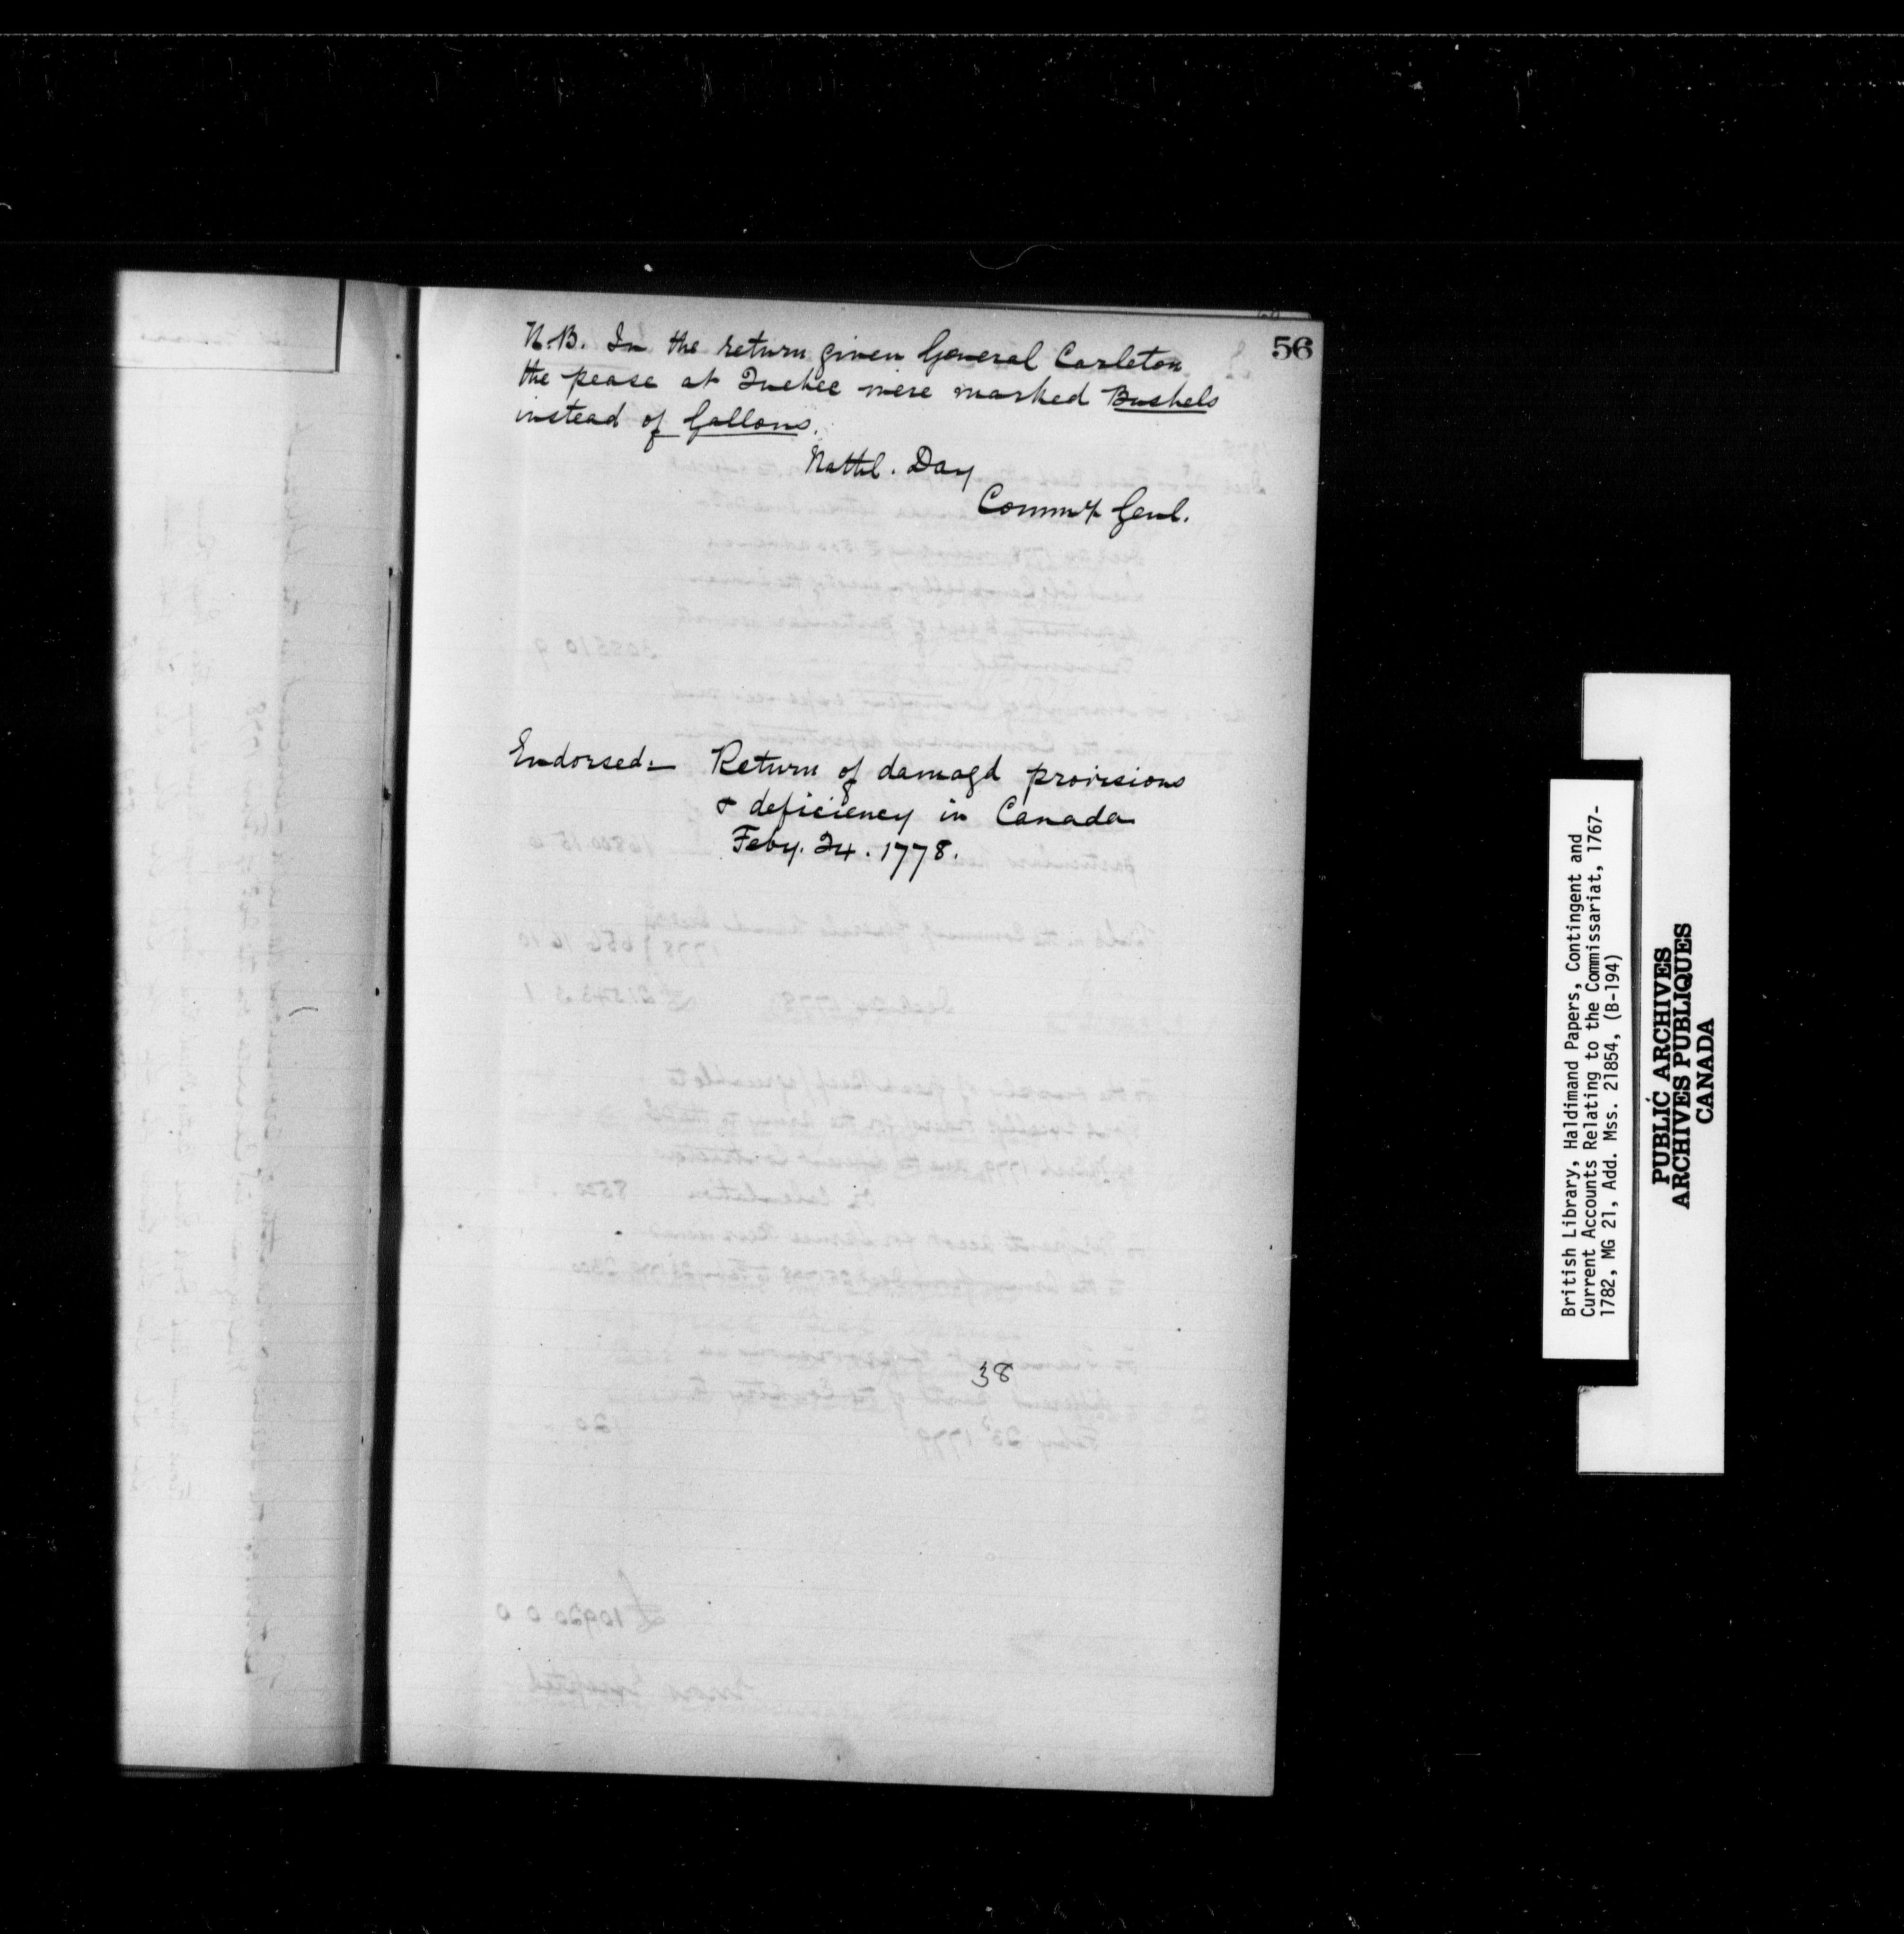 56
N.B. In the return given General Carleton
the pease at Quebec were marked Bushels
instead of Gallons.
Nathl. Day
Commy Genl.
Endorsed:— Return of damagd provisions
& deficiency in Canada
Feby. 24. 1778.
38
British Library, Haldimand Papers, Contingent and
Current Accounts Relating to the Commissariat, 1767-
1782, MG 21, Add. Mss. 21854, (B-194)
PUBLIC ARCHIVES
ARCHIVES PUBLIQUES
CANADA